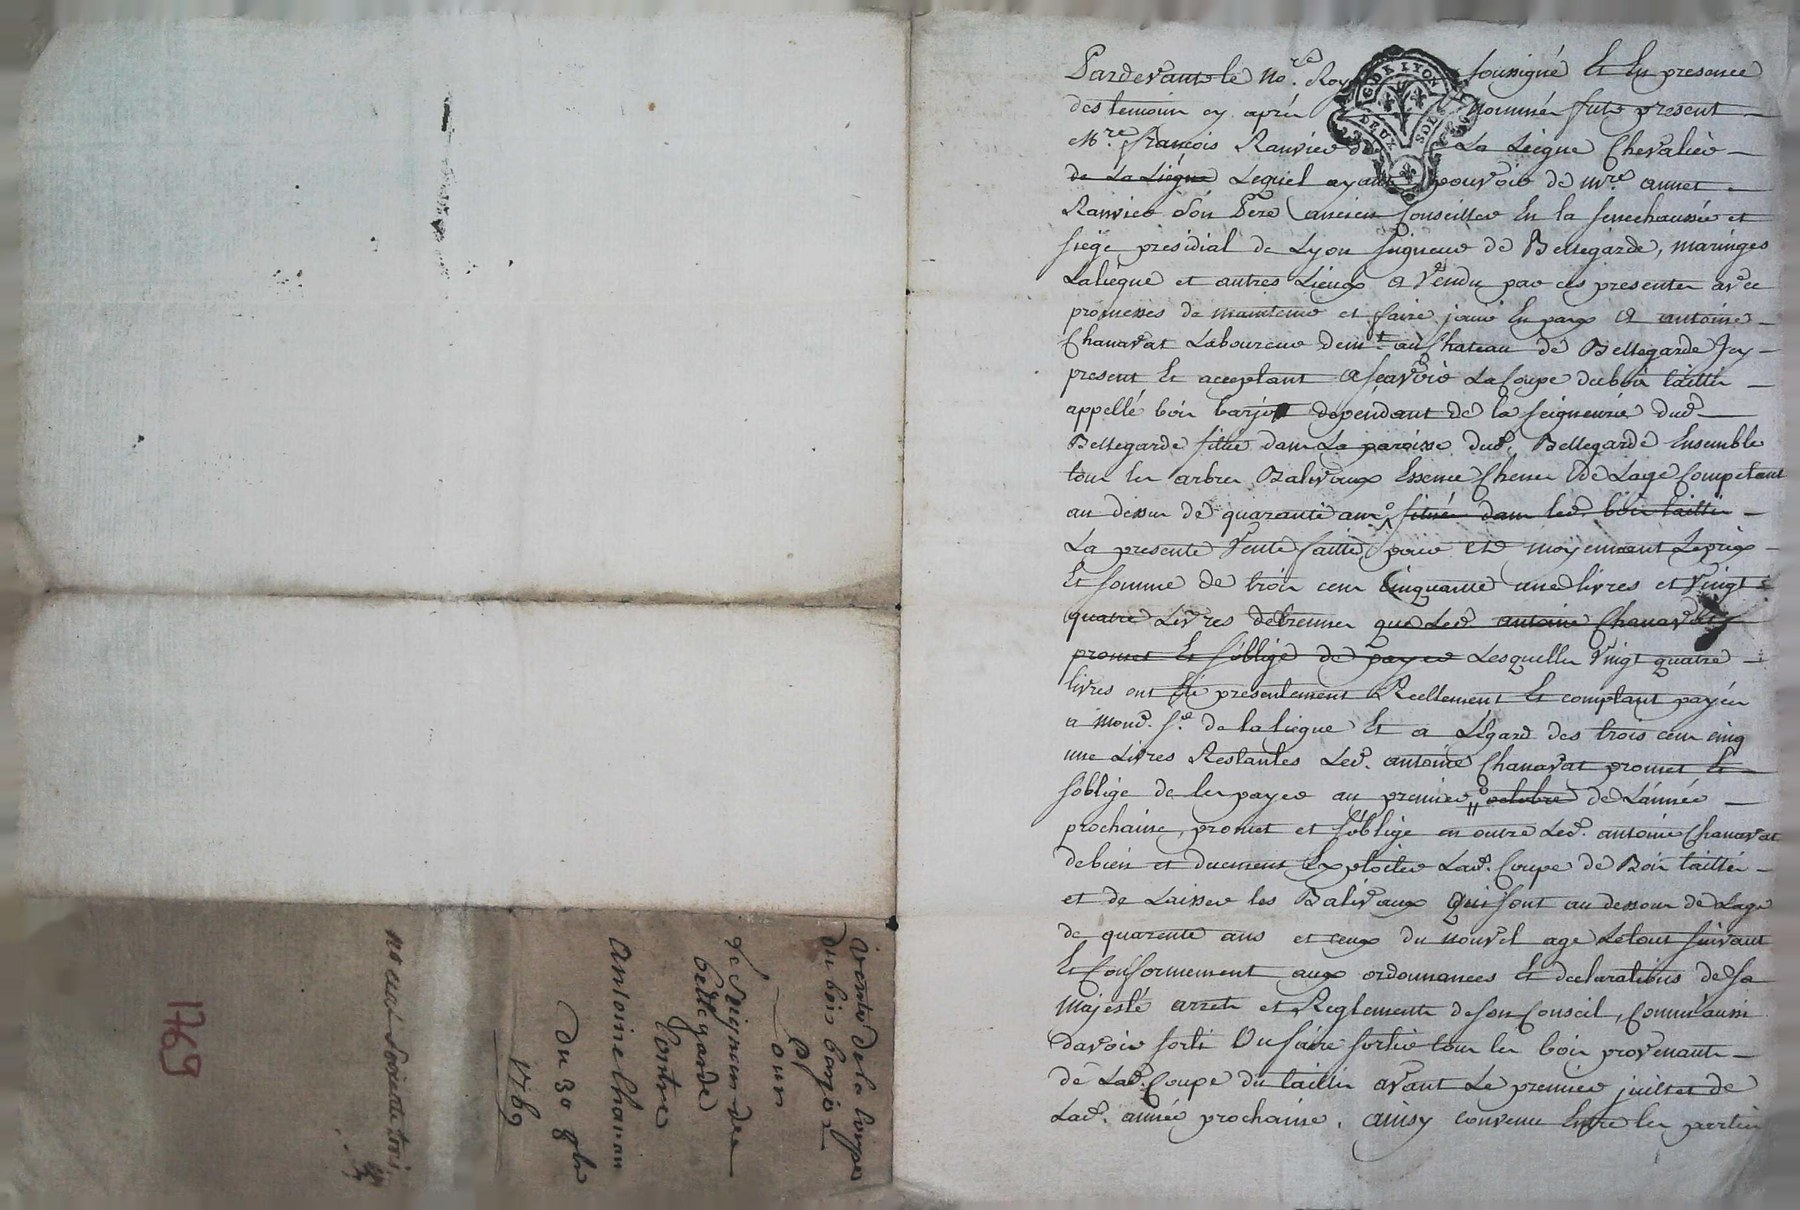 Pardevant le no.re Roy soussigné Et En presence
des temoin cy aprés nommés fut present
M.re françois Ranvier de La Liegue Chevalier
de La Liegue Lequel ayant pouvoir de mre. annet
Ranvier son Pere ancien Conseiller En la senechaussée et
siege presidial de Lyon seigneur de Bellegarde, maringes
Laliegue et autres Lieux a Vendu par ces presentes avec
promesses de maintenir et faire jouir En paix a antoine
Chanavat Laboureur demt. au Chateau de Bellegarde Jcy
present Et acceptant a scavoir La Coupe du bois taillis
appellé bois barjot dependant de la seigneurie dud.
Bellegarde situé dans La paroisse dud. Bellegarde Ensemble
tous les arbres Baliveaux Essence Chene de Lage Competant
au dessus de quarante ans situés dans led. bois taillis
La presente Vente faitte pour et moyennant Le prix
Et somme de trois cens cinquante une livres et vingt
quatre Livres detrennes que Led. antoine Chanavat
promet Et s'oblige de payer Lesquelles vingt quatre
livres ont Eté presentement Reellement Et comptant payées
a mond. sr. de la liegue Et a L'égard des trois cens cinq
une Livres Restantes Led. antoine Chanavat promet Et
s'oblige de les payer au premier octobre de L'année
prochaine, promet et s'oblige en outre Led. antoine Chanavat
de bien et duement Exploiter Lad. Coupe de Bois taillis
et de Laisser les Baliveaux qui sont au dessous de Lage
de quarente ans et ceux du nouvel age Letout suivant
Et Conformement aux ordonnances Et declarations de sa
majesté arrets et Reglements de son Conseil, Comm'aussi
davoir sorti ou faire sortir tous les bois provenants
de Lad. Coupe du taillis avant Le premier juillet de
Lad. année prochaine, ainsy convenu Entre les parties
G. DE LYON
DEUX SOLS
vente de la Coupe
du bois barjot
pour
le Seigneur de
bellegarde
Contre
antoine Chanavat
Du 30 8bre
1769
1769